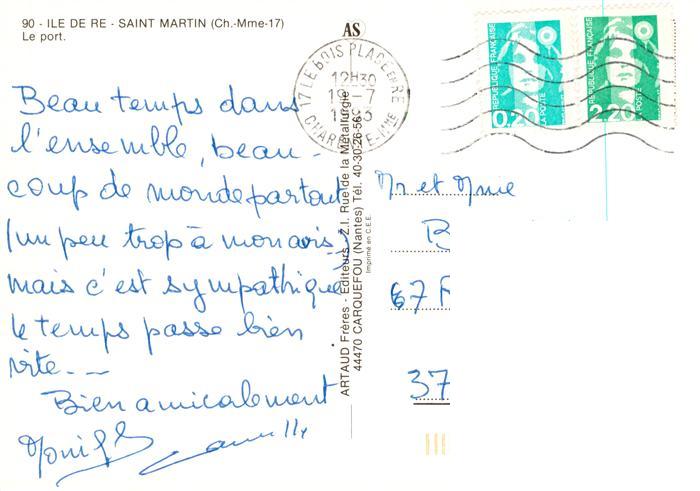 90 - ILE DE RE - SAINT MARTIN (Ch.-Mme-17)
Le port.
AS
Beau temps dans
l'ensemble, beau-
coup de monde partout
(un peu trop à mon avis)
mais c'est sympathique
le temps passe bien
vite...
Bien amicalement
ARTAUD Frères - Editeurs - Z.I. Rue de la Métallurgie
44470 CARQUEFOU (Nantes) Tél. 40-30-28-56
Imprimé en C.E.E.
17 LE BOIS PLAGE EN RE
12H30
CHARENTE-Mme
REPUBLIQUE FRANÇAISE
0,20
LA POSTE
REPUBLIQUE FRANÇAISE
2,20
LA POSTE
Mr et Mme
B
67 F
37